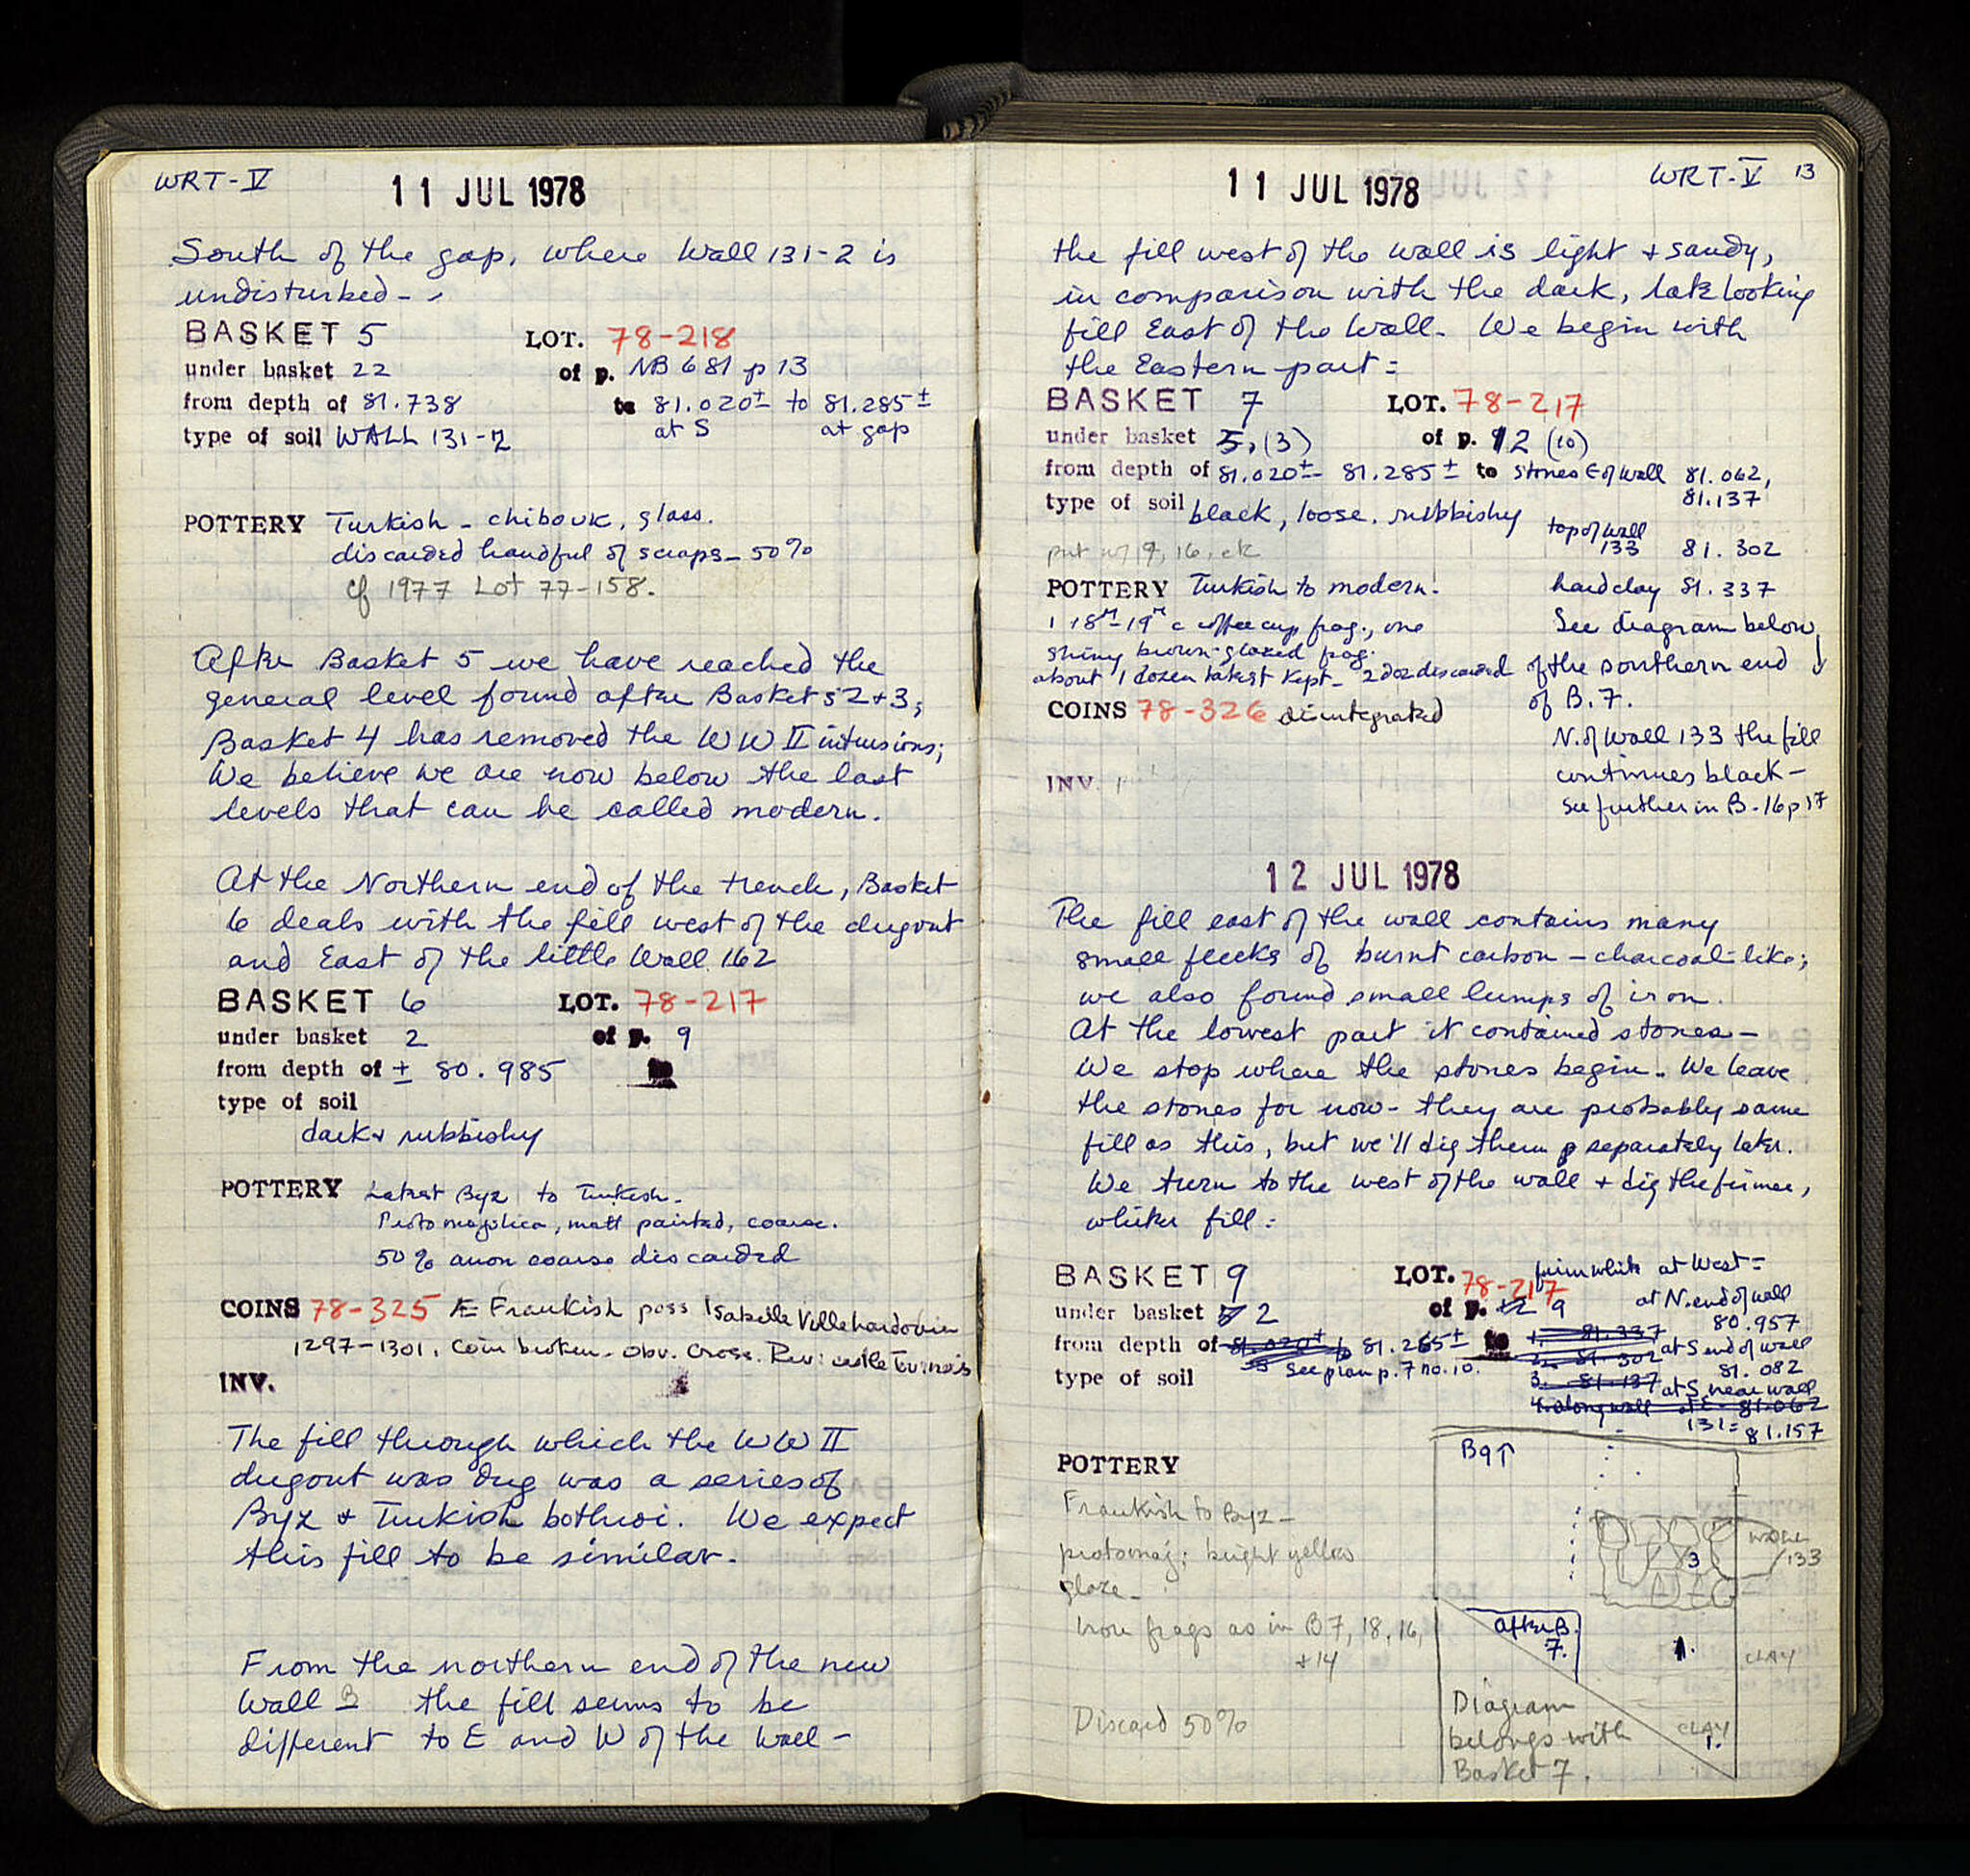 WRT-V
11 JUL 1978
South of the gap, where Wall 131-2 is
undisturbed - -
BASKET 5 LOT. 78-218
under basket 22 of p. NB 681 p 13
from depth of 81.738 to 81.020± to 81.285±
at S at gap
type of soil WALL 131-2
POTTERY Turkish - chibouk, glass.
discarded handful of scraps - 50%
cf 1977 Lot 77-158.
After Basket 5 we have reached the
general level found after Baskets 2+3;
Basket 4 has removed the WW II intrusions;
We believe we are now below the last
levels that can be called modern.
At the Northern end of the trench, Basket
6 deals with the fill west of the dugout
and East of the little Wall 162
BASKET 6 LOT. 78-217
under basket 2 of p. 9
from depth of ± 80.985
type of soil
dark + rubbishy
POTTERY Latest Byz to Turkish.
Protomajolica, matt painted, coarse.
50% anon coarse discarded
COINS 78-325 Æ Frankish poss Isabelle Villehardouin
1297-1301. Coin broken. Obv. Cross. Rev: castle Tournois
INV.
The fill through which the WW II
dugout was dug was a series of
Byz + Turkish bothroi. We expect
this fill to be similar.
From the northern end of the new
Wall B the fill seems to be
different to E and W of the Wall -
11 JUL 1978
WRT-V 13
the fill west of the wall is light + sandy,
in comparison with the dark, late looking
fill East of the Wall. We begin with
the Eastern part:
BASKET 7 LOT. 78-217
under basket 5, (3) of p. 12 (10)
from depth of 81.020± - 81.285± to stones E of Wall 81.062,
81.137
type of soil black, loose, rubbishy
top of Wall
133 81.302
put w/ 9, 16, etc
hard clay 81.337
POTTERY Turkish to modern.
1 18th-19th c coffee cup frag., one
shiny brown-glazed frag.
about 1 dozen latest kept - 2 doz discarded
See diagram below
of the southern end
of B. 7.
COINS 78-326 disintegrated
N. of Wall 133 the fill
continues black -
See further in B-16 p 17
INV.
12 JUL 1978
The fill east of the wall contains many
small flecks of burnt carbon - charcoal-like;
we also found small lumps of iron.
At the lowest part it contained stones -
We stop where the stones begin. We leave
the stones for now - they are probably same
fill as this, but we'll dig them separately later.
We turn to the west of the wall + dig the firmer,
whiter fill:
BASKET 9 LOT. 78-217
firm white at West =
under basket 2 of p. 9
at N. end of wall
80.957
from depth of 81.265± to
at S end of wall
81.082
See plan p. 7 no. 10.
type of soil
at S near wall
131 = 81.157
POTTERY
Frankish to Byz -
protomaj; bright yellow
glaze -
Iron frags as in B7, 18, 16,
+ 14
Discard 50%
B9↑
WALL
133
3
after B.
7.
1.
CLAY
CLAY
1.
Diagram
belongs with
Basket 7.